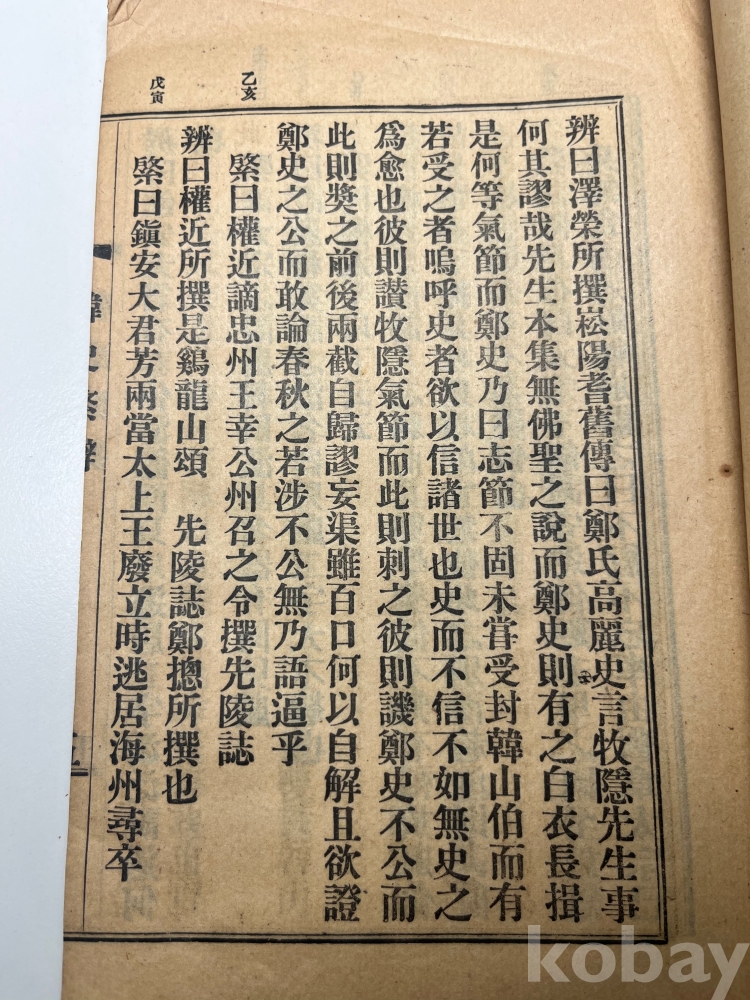 辨曰澤榮所撰崧陽耆舊傳曰鄭氏高麗史言牧隱先生事
何其謬哉先生本集無佛聖之說而鄭史則有之白衣長揖
是何等氣節而鄭史乃曰志節不固未甞受封韓山伯而有
若受之者嗚呼史者欲以信諸世也史而不信不如無史之
爲愈也彼則讃牧隱氣節而此則刺之彼則譏鄭史不公而
此則奬之前後兩截自歸謬妄渠雖百口何以自解且欲證
鄭史之公而敢論春秋之若涉不公無乃語逼乎
乙亥
綮曰權近謫忠州王幸公州召之令撰先陵誌
辨曰權近所撰是鷄龍山頌 先陵誌鄭摠所撰也
戊寅
綮曰鎭安大君芳兩當太上王廢立時逃居海州尋卒
韓史綮辨
kobay